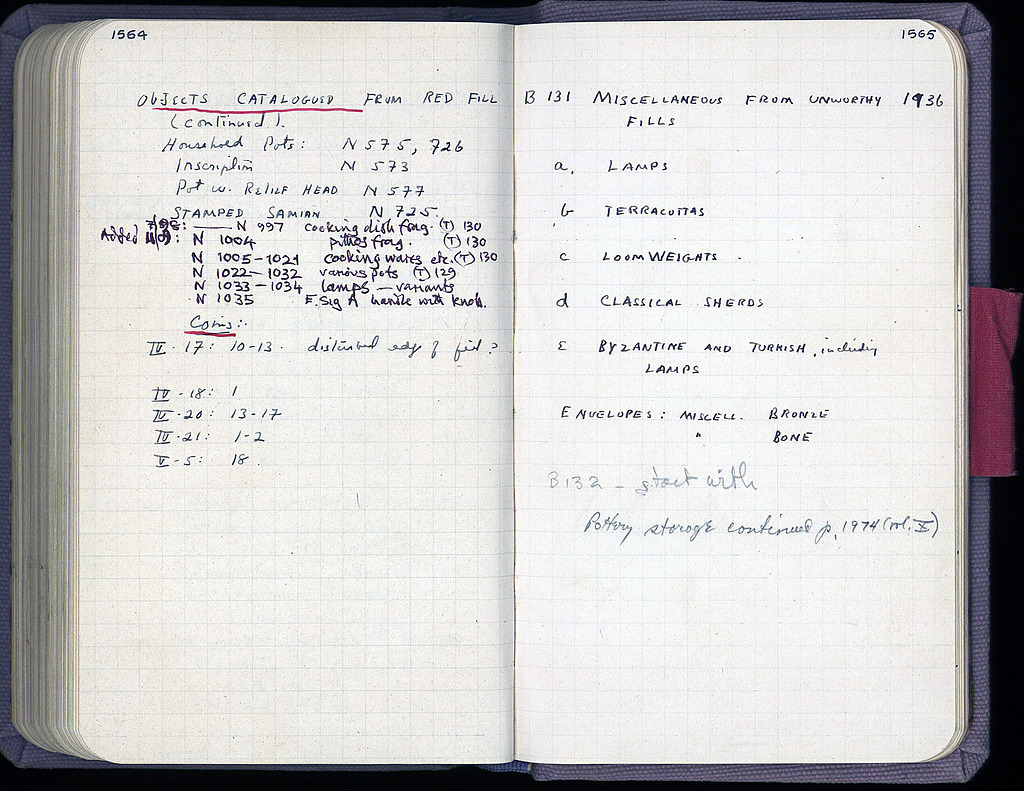 1564
OBJECTS CATALOGUED FROM RED FILL
(continued).
Household Pots: N 575, 726
Inscription N 573
Pot w. RELIEF HEAD N 577
STAMPED SAMIAN N 725.
N 997 cooking dish frag. (T) 130
Added : N 1004 pithos frag. (T) 130
N 1005-1021 cooking wares etc. (T) 130
N 1022-1032 various pots (T) 129
N 1033-1034 lamps - variants
N 1035 E. Sig A handle with knob.
Coins:
IV·17: 10-13. disturbed edge of fill?
IV·18: 1
IV·20: 13-17
IV·21: 1-2
V·5: 18.
1565
B 131 MISCELLANEOUS FROM UNWORTHY 1936
FILLS
a. LAMPS
b TERRACOTTAS
c LOOMWEIGHTS.
d CLASSICAL SHERDS
E BYZANTINE AND TURKISH, including
LAMPS
ENVELOPES: MISCELL. BRONZE
" BONE
B 132 - start with
Pottery storage continued p. 1974 (vol. X)